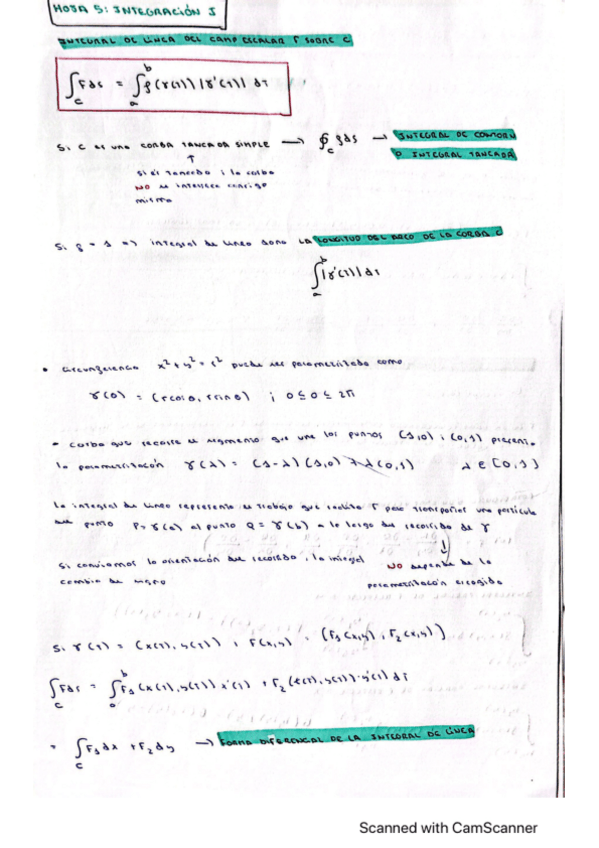 HOJA 5: INTEGRACIÓN I
INTEGRAL DE LÍNEA DEL CAMPO ESCALAR F SOBRE C
∫_C F ds = ∫_a^b f(γ(t)) |γ'(t)| dt
Si C es una CORBA TANCADA SIMPLE → ∮_C f ds → INTEGRAL DE CONTORN
O INTEGRAL TANCADA
si és tancada i la corba
NO se interseca consigo
misma
Si f = 1 => integral de línea dona LA LONGITUD DEL ARCO DE LA CORBA C
∫_a^b |γ'(t)| dt
• Circunferencia x² + y² = r² puede ser parametrizada como
γ(θ) = (r cos θ, r sin θ) ; 0 ≤ θ ≤ 2π
- Corba que recorre el segmento que une los puntos (1,0) i (0,1) presenta
la parametrización γ(λ) = (1-λ)(1,0) + λ(0,1) λ ∈ [0,1]
La integral de línea representa el trabajo que realiza F para transportar una partícula
del punto P = γ(a) al punto Q = γ(b) a lo largo del recorrido de γ
Si canviamos la orientación del recorrido, la integral NO depende de la
cambia de signo parametrización escogida
Si γ(t) = (x(t), y(t)) i F(x,y) = (F₁(x,y), F₂(x,y))
∫_C F ds = ∫_a^b F₁(x(t), y(t)) x'(t) + F₂(x(t), y(t)) · y'(t) dt
= ∫_C F₁ dx + F₂ dy → FORMA DIFERENCIAL DE LA INTEGRAL DE LÍNEA
Scanned with CamScanner